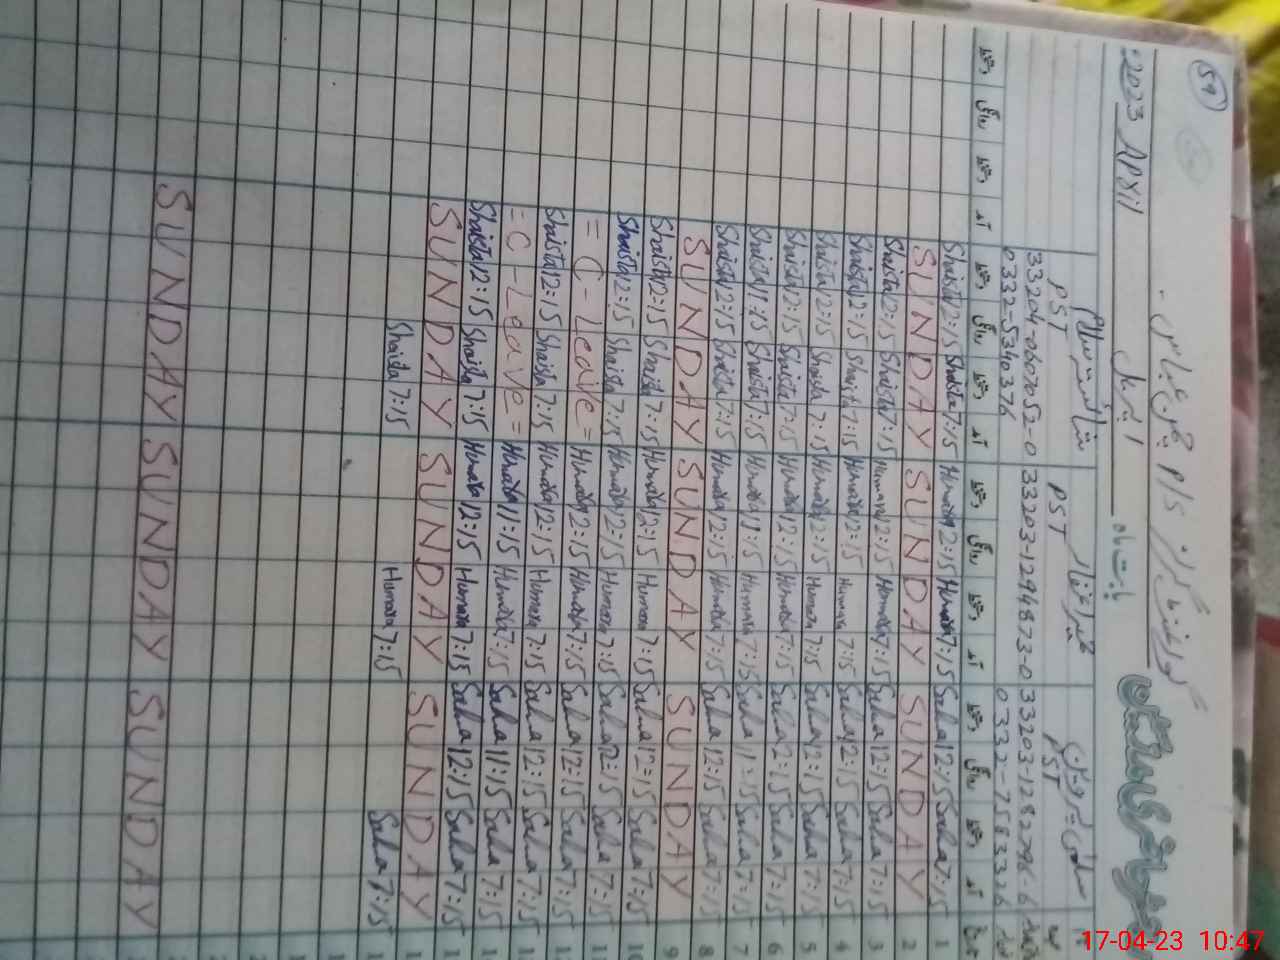 59
گورنمنٹ گرلز P/S
2023 APril اپریل بابت ماہ
PST PST PST
33204-0607052-0 33203-1294873-0 33203-1282296-6
0332-5340376 0332-7583326
دستخط روانگی دستخط آمد دستخط روانگی دستخط آمد دستخط روانگی دستخط آمد دستخط روانگی دستخط آمد
Shaista 12:15 Shaista 7:15 Humaira 12:15 Humaira 7:15 Salma 12:15 Salma 7:15 1
SUNDAY SUNDAY SUNDAY 2
Shaista 12:15 Shaista 7:15 Humaira 12:15 Humaira 7:15 Salma 12:15 Salma 7:15 3
Shaista 12:15 Shaista 7:15 Humaira 12:15 Humaira 7:15 Salma 12:15 Salma 7:15 4
Shaista 12:15 Shaista 7:15 Humaira 12:15 Humaira 7:15 Salma 12:15 Salma 7:15 5
Shaista 12:15 Shaista 7:15 Humaira 12:15 Humaira 7:15 Salma 12:15 Salma 7:15 6
Shaista 11:15 Shaista 7:15 Humaira 11:15 Humaira 7:15 Salma 11:15 Salma 7:15 7
Shaista 12:15 Shaista 7:15 Humaira 12:15 Humaira 7:15 Salma 12:15 Salma 7:15 8
SUNDAY SUNDAY SUNDAY 9
Shaista 12:15 Shaista 7:15 Humaira 12:15 Humaira 7:15 Salma 12:15 Salma 7:15 10
Shaista 12:15 Shaista 7:15 Humaira 12:15 Humaira 7:15 Salma 12:15 Salma 7:15
= C-Leave = Humaira 12:15 Humaira 7:15 Salma 12:15 Salma 7:15
Shaista 12:15 Shaista 7:15 Humaira 12:15 Humaira 7:15 Salma 12:15 Salma 7:15
= C-Leave = Humaira 11:15 Humaira 7:15 Salma 11:15 Salma 7:15
Shaista 12:15 Shaista 7:15 Humaira 12:15 Humaira 7:15 Salma 12:15 Salma 7:15
SUNDAY SUNDAY SUNDAY
Shaista 7:15 Humaira 7:15 Salma 7:15
SUNDAY SUNDAY SUNDAY
17-04-23 10:47